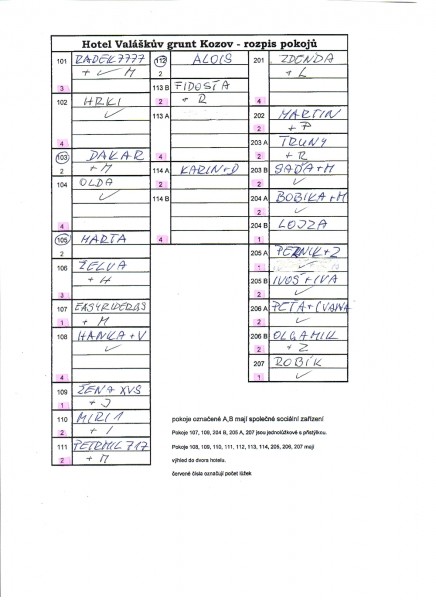 Hotel Valáškův grunt Kozov - rozpis pokojů
101 RADEK7777
+ M
3
102 HRKI
4
103 DAKAR
2 + M
104 OLDA
4
105 MARTA
2
106 ŽELVA
3 + H
107 EASYRIDER85
1 + M
108 HANKA + V
4
109 ŽENA XVS
1 + J
110 MIRI 1
2 + I
111 PETRMIL 717
2 + M
112 ALOIS
2
113 B FIDOSTA
2 + R
113 A
4
114 A KARIN+D
2
114 B
4
201 ZDENDA
+ L
4
202 MARTIN
2 + P
203 A TRUNY
2 + R
203 B GAĎA+M
2
204 A BOBIKA+M
2
204 B LOJZA
1
205 A PERNIK+Z
1
205 B IVOŠ+IVA
2
206 A PEŤA+IVANA
2
206 B OLGAMILK
2 + Z
207 ROBÍK
1
pokoje označené A,B mají společné sociální zařízení
Pokoje 107, 109, 204 B, 205 A, 207 jsou jednolůžkové s přistýlkou.
Pokoje 108, 109, 110, 111, 112, 113, 114, 205, 206, 207 mají
výhled do dvora hotelu.
červené čísla označují počet lůžek